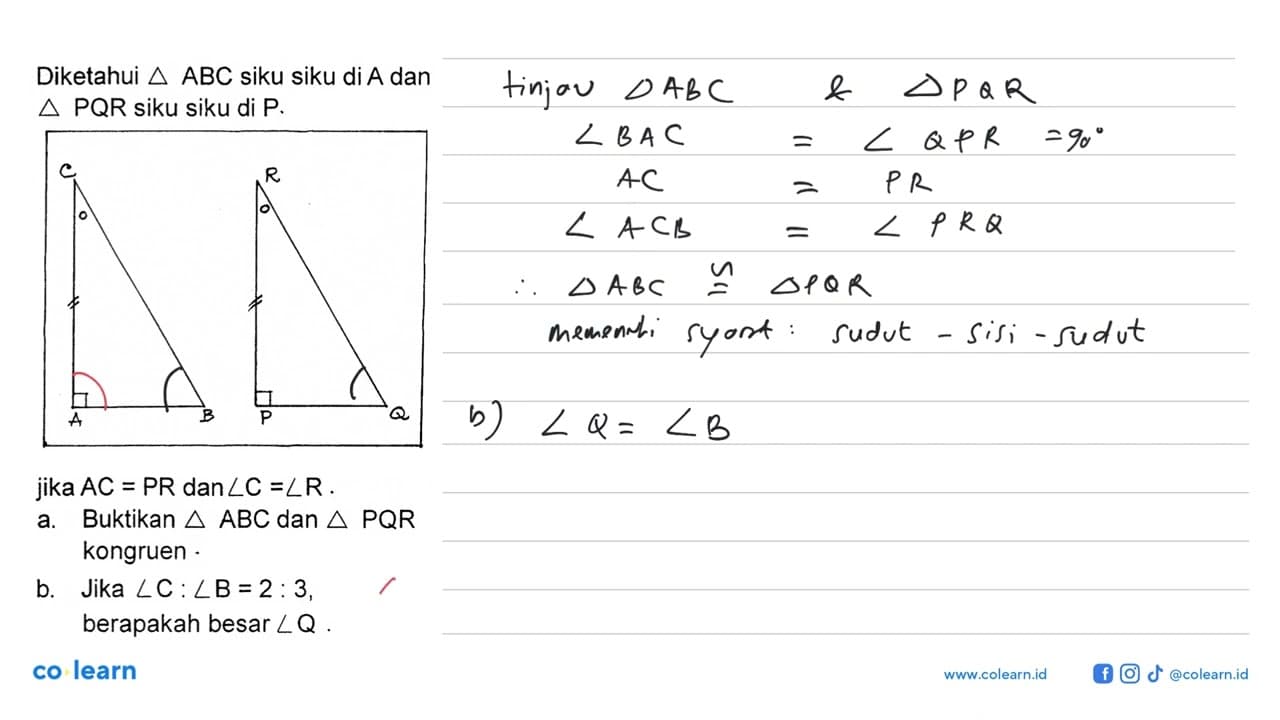 Diketahui △ ABC siku siku di A dan
△ PQR siku siku di P.
C
R
A
B
P
Q
jika AC = PR dan ∠C = ∠R .
a. Buktikan △ ABC dan △ PQR
kongruen .
b. Jika ∠C : ∠B = 2 : 3,
berapakah besar ∠Q .
tinjau △ABC & △PQR
∠BAC = ∠QPR = 90°
AC = PR
∠ACB = ∠PRQ
∴ △ABC ≅ △PQR
memenuhi syarat : sudut - sisi - sudut
b) ∠Q = ∠B
co learn
www.colearn.id
@colearn.id